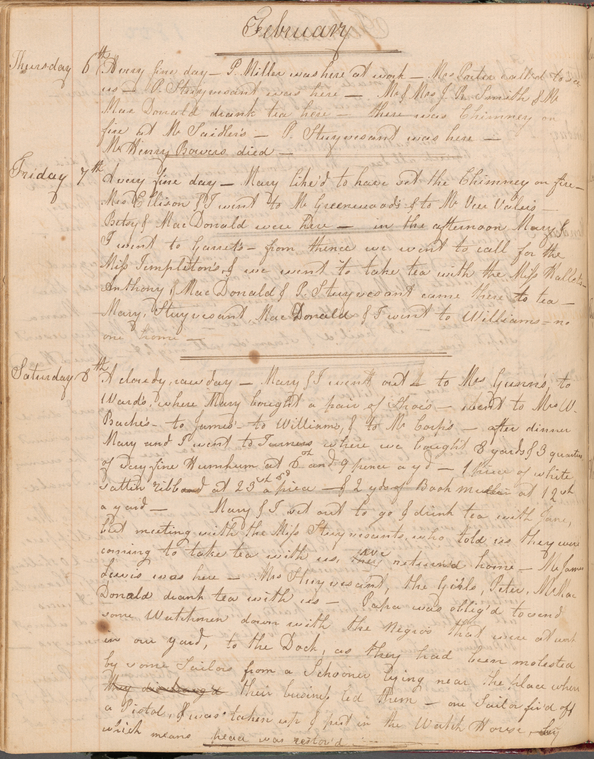 February
Thursday 6th A very fine day – P. Miller was here at work – Mrs called to see
us – P. Stuyvesant was here – Mr & Mrs J. R. Smith & Mr
Mac Donald drank tea here – there was Chimney on
fire at Mr Saidler's – P. Stuyvesant was here –
Mr Henry Bowers died –
Friday 7th A very fine day – Mary like'd to have set the Chimney on fire –
Mrs Ellison & I went to Mr Greenwood's & to Mr
Betsy & Mac Donald were here – in the afternoon Mary &
I went to Garrets – from thence we went to call for the
Miss Templetons, & we went to take tea with the Miss
Anthony & Mac Donald & P. Stuyvesant came there to tea –
Mary, Stuyvesant Mac Donald & I went to Williams – no
one home –
Saturday 8th A cloudy, raw day – Mary & I went out – to Mrs to
Wards, where Mary bought a pair of Shoes – went to Mrs W.
Bache's – to James' – to William's, & to Mr – after dinner
Mary and I went to where we bought 8 yards & 3 quarters
of Humhum at and 9 pence a yd – 1 piece of white
sattin ribband at a piece – & 2 yds of Book at 12
a yard – Mary & I set out to go & drink tea with
but meeting with the Miss Stuyvesants, who told us they were
coming to take tea with us, we return'd home – Mr James
was here – Mrs Stuyvesant, the Girls, Peter, Mr Mac
Donald drank tea with us – Papa was oblig'd to send
some Watchmen down with the Negros that were at work
in our yard, to the Dock, as they had been molested
by some Sailors from a Schooner lying near the place where
their business led them – one Sailor fir'd off
a Pistol, & was taken up & put in the Watch House, by
which means peace was restor'd